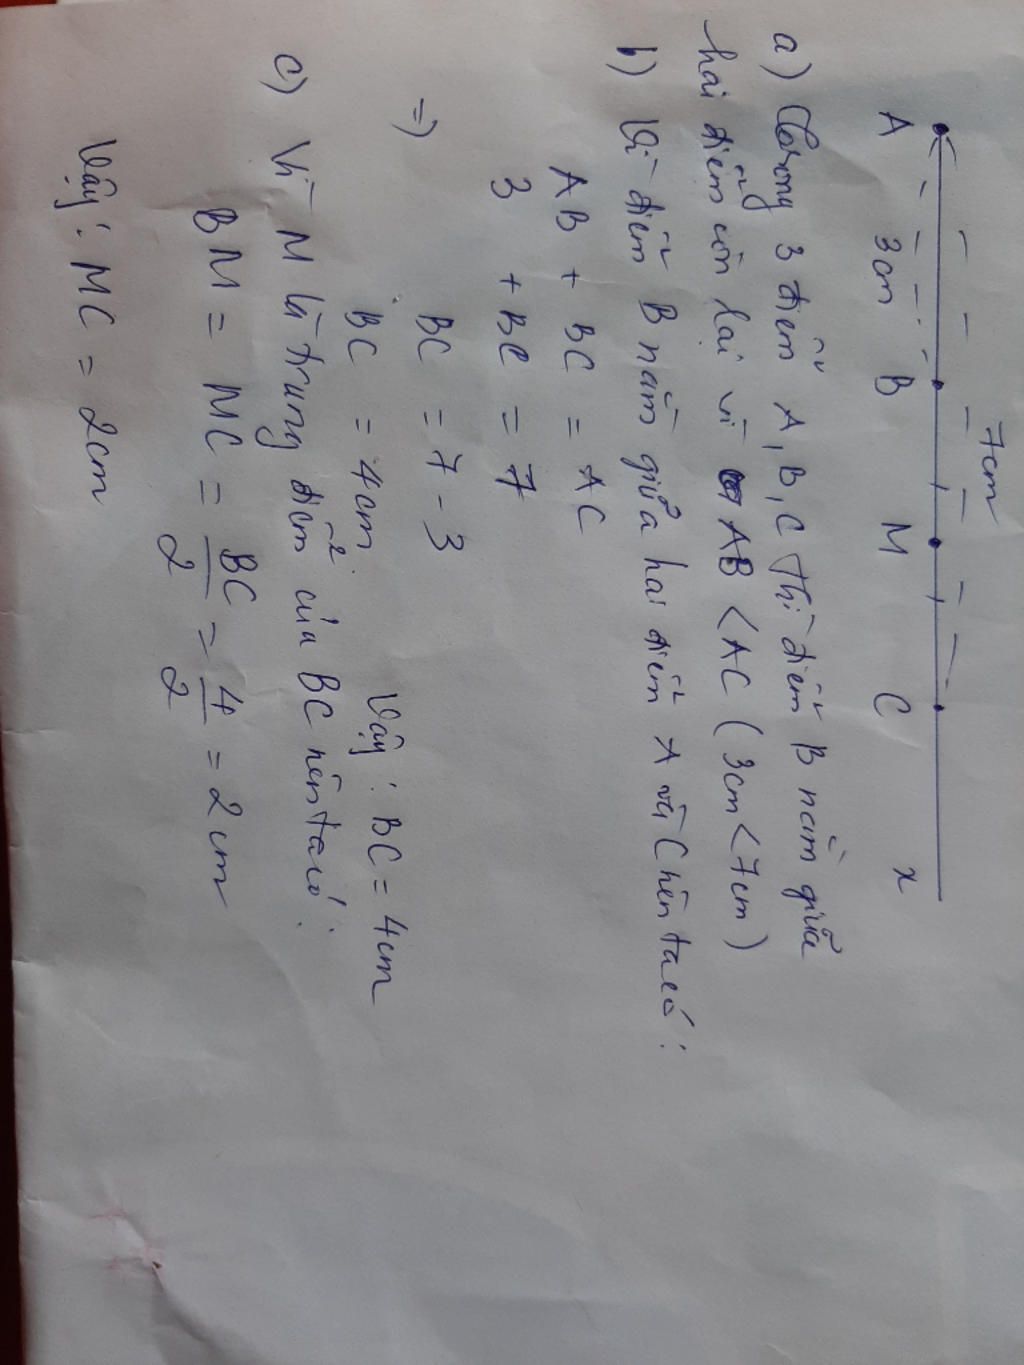 7cm
A 3cm B M C x
a) Trong 3 điểm A, B, C thì điểm B nằm giữa
hai điểm còn lại vì AB < AC (3cm < 7cm)
b) Vì điểm B nằm giữa hai điểm A và C nên ta có:
AB + BC = AC
3 + BC = 7
=> BC = 7 - 3
BC = 4cm. Vậy: BC = 4cm
c) Vì M là trung điểm của BC nên ta có:
BM = MC = BC/2 = 4/2 = 2cm
Vậy: MC = 2cm